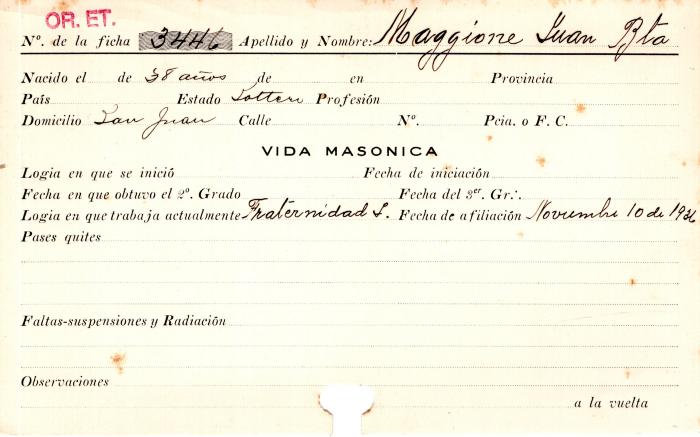 OR. ET.
Nº. de la ficha 3446 Apellido y Nombre: Maggione Juan Bta
Nacido el de 38 años de en Provincia
País Estado Solter Profesión
Domicilio San Juan Calle Nº. Pcia. o F. C.
VIDA MASONICA
Logia en que se inició Fecha de iniciación
Fecha en que obtuvo el 2º. Grado Fecha del 3er. Gr∴
Logia en que trabaja actualmente Fraternidad S. Fecha de afiliación Noviembre 10 de 1936
Pases quites
Faltas-suspensiones y Radiación
Observaciones
a la vuelta